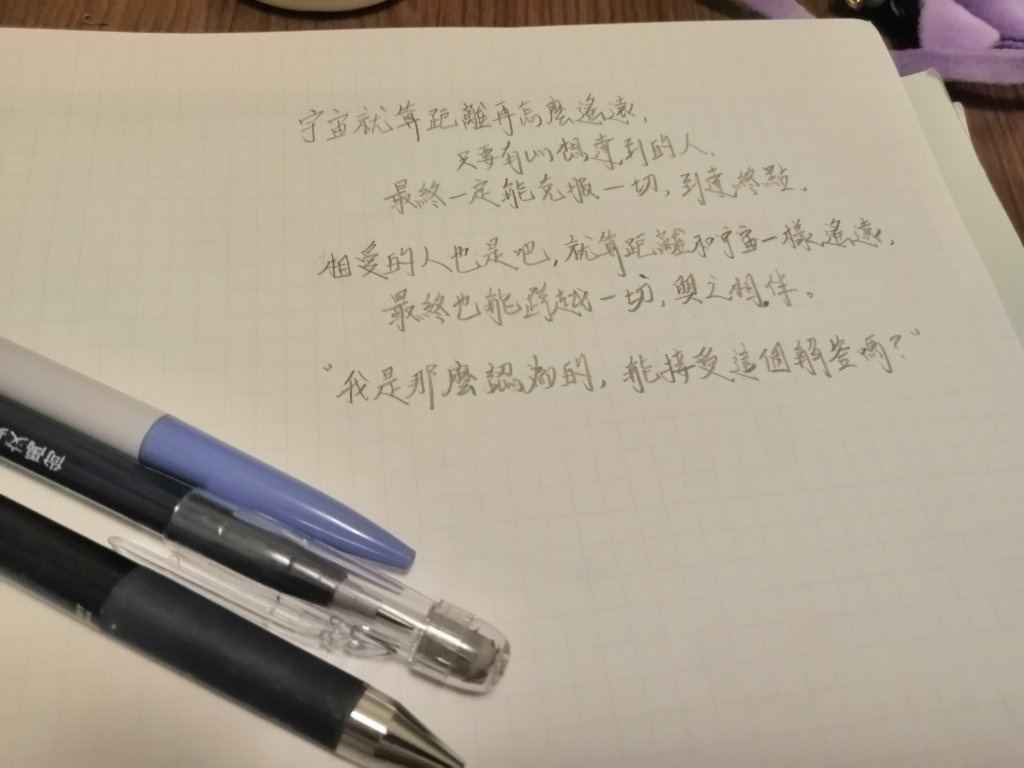 宇宙就算距離再怎麼遙遠，
只要有心想達到的人，
最終一定能克服一切，到達終點。
相愛的人也是吧，就算距離和宇宙一樣遙遠，
最終也能跨越一切，與之相伴。
“我是那麼認為的，能接受這個解答嗎？”
尚禹文